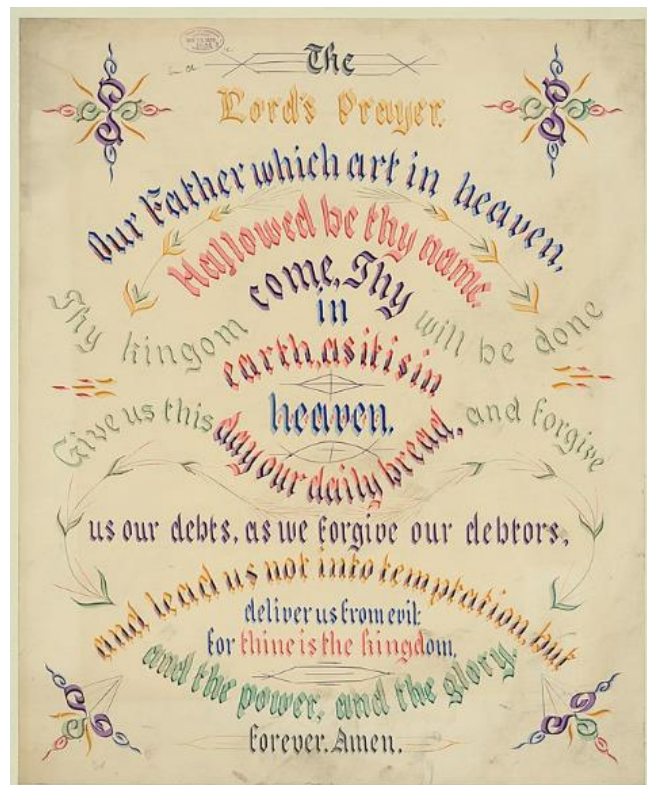 The
Lord's Prayer.
Our Father which art in heaven,
Hallowed be thy name.
Thy kingom come, Thy will be done
in
earth, as it is in
heaven.
Give us this day our daily bread, and forgive
us our debts, as we forgive our debtors,
and lead us not into temptation, but
deliver us from evil:
for thine is the kingdom,
and the power, and the glory.
forever. Amen.